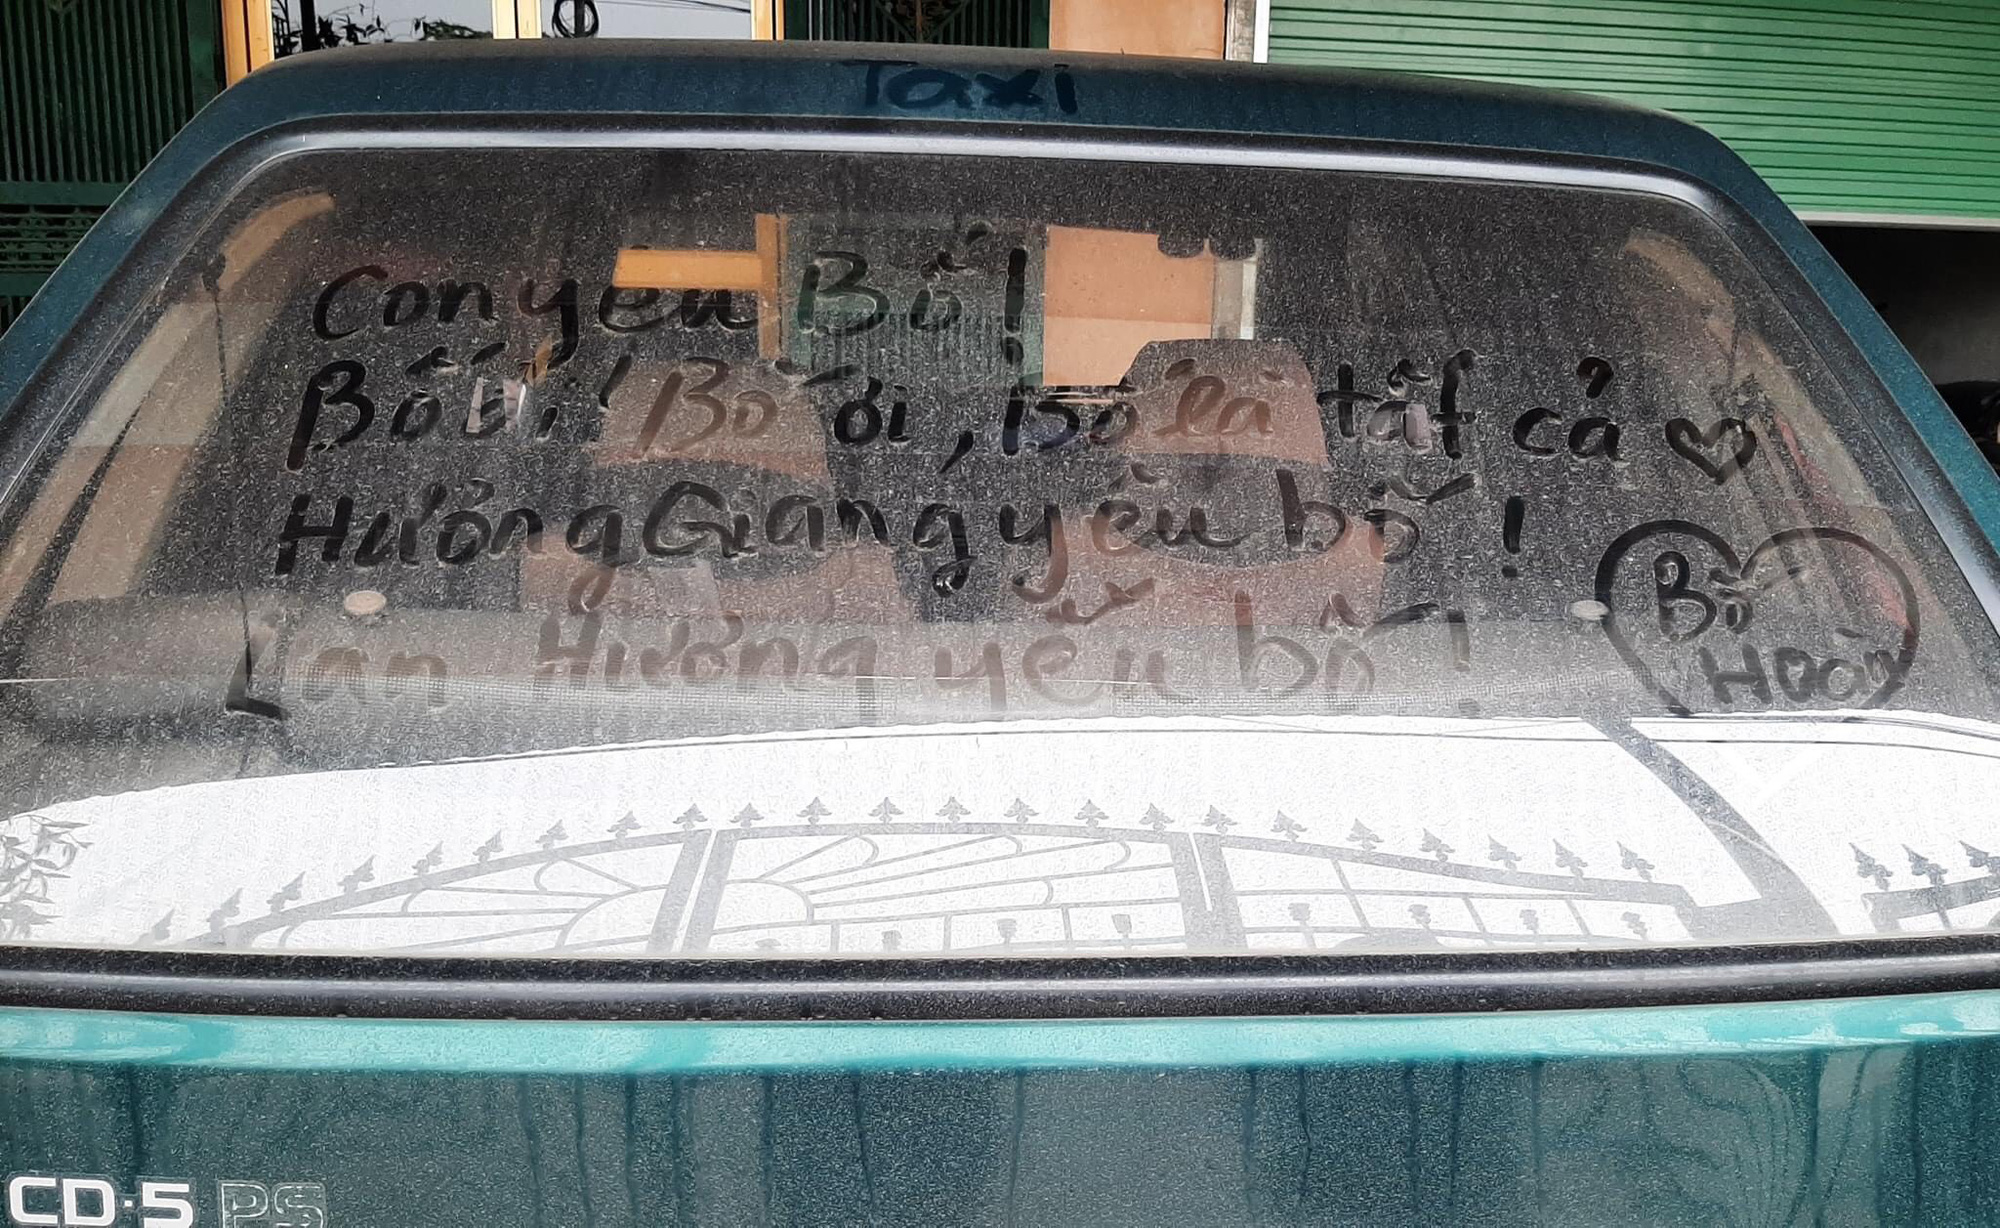 Taxi
Con yêu Bố!
Bố ơi! Bố ơi, Bố là tất cả ♡
Hưởng Giang yêu bố!
Lan Hương yêu bố!
Bố
Hoàng
CD·5 PS